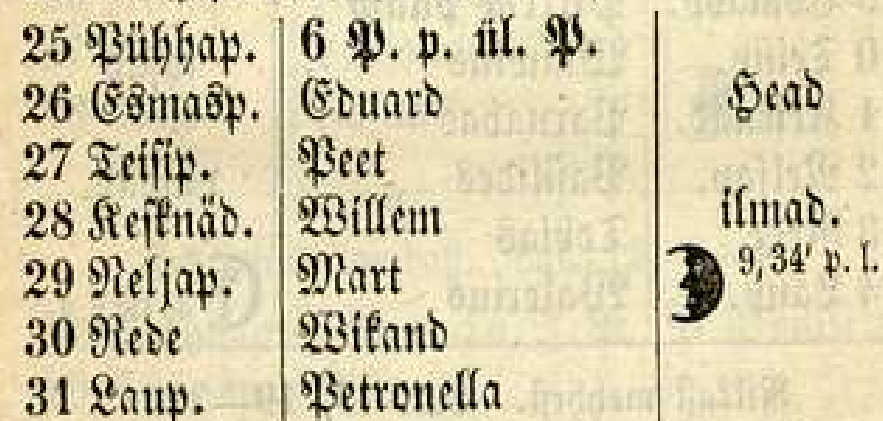 25 Pühhap. 6 P. p. ül. P.
26 Esmasp. Eduard Head
27 Teisip. Peet
28 Kesknäd. Willem ilmad.
29 Neljap. Mart 9,34' p. l.
30 Rede Wikand
31 Laup. Petronella